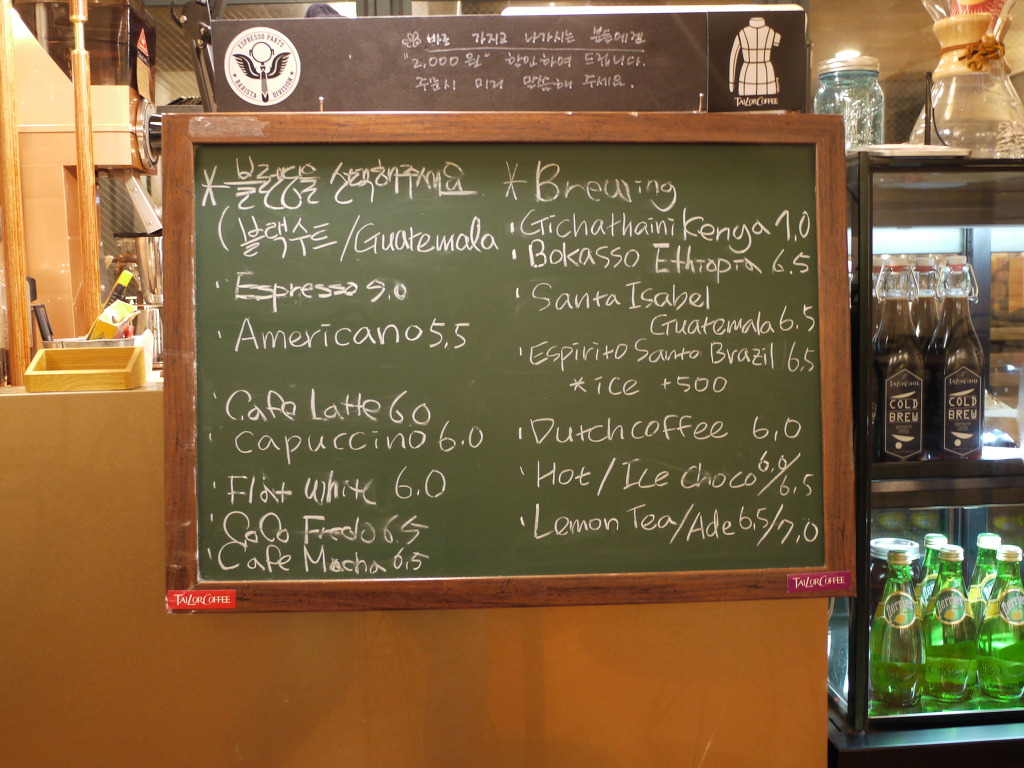 ESPRESSO PARTS
BARISTA DIVISION
바로 가지고 나가시는 분들에겐
"2,000원" 할인하여 드립니다.
주문시 미리 말씀해 주세요.
TAILORCOFFEE
* 블랜딩을 선택해주세요
(블랙수트/Guatemala
· Espresso 5.0
· Americano 5.5
· Cafe Latte 6.0
· Capuccino 6.0
· Flat white 6.0
· CoCo Fredo 6.5
· Cafe Mocha 6.5
* Brewing
· Gichathaini Kenya 7.0
· Bokasso Ethiopia 6.5
· Santa Isabel
Guatemala 6.5
· Espirito Santo Brazil 6.5
* ice +500
· Dutch coffee 6.0
· Hot/Ice Choco 6.0/6.5
· Lemon Tea/Ade 6.5/7.0
TAILORCOFFEE
TAILORCOFFEE
TAILORCOFFEE
COLD
BREW
TAILORCOFFEE
COLD
BREW
Perrier
Perrier
Perrier